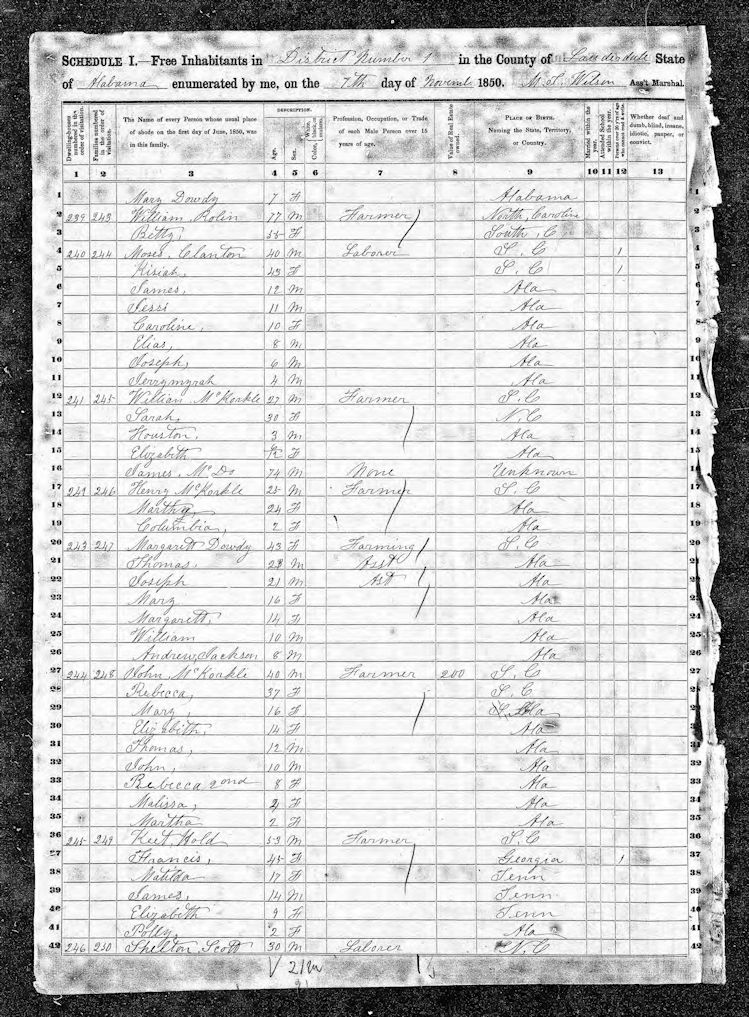 SCHEDULE I.—Free Inhabitants in District Number 1 in the County of Lauderdale State
of Alabama enumerated by me, on the 7th day of Novemb 1850. Wilson Ass't Marshal.
Dwelling-houses numbered in the order of visitation.
Families numbered in the order of visitation.
The Name of every Person whose usual place of abode on the first day of June, 1850, was in this family.
DESCRIPTION.
Age.
Sex.
Color, White, black, or mulatto.
Profession, Occupation, or Trade of each Male Person over 15 years of age.
Value of Real Estate owned.
PLACE OF BIRTH. Naming the State, Territory, or Country.
Married within the year.
Attended School within the year.
Persons over 20 y'rs of age who cannot read & write.
Whether deaf and dumb, blind, insane, idiotic, pauper, or convict.
1 2 3 4 5 6 7 8 9 10 11 12 13
1 Mary Dowdy 7 F Alabama 1
2 239 243 William Rolin 77 M Farmer North Carolina 2
3 Betty, 55 F South, C 3
4 240 244 Moses, Clanton 40 M Laborer S, C 1 4
5 Kisiah, 43 F S, C 1 5
6 James, 12 M Ala 6
7 Jessi 11 M Ala 7
8 Caroline, 10 F Ala 8
9 Elias, 8 M Ala 9
10 Joseph, 6 M Ala 10
11 Jerrymyrah 4 M Ala 11
12 241 245 William McKorkle 27 M Farmer S, C 12
13 Sarah, 30 F N, C 13
14 Houston, 3 M Ala 14
15 Elizabeth F Ala 15
16 James, McDo 74 M None Unknown 16
17 242 246 Henry McKorkle 25 M Farmer S, C 17
18 Martha, 24 F Ala 18
19 Columbia, 2 F Ala 19
20 243 247 Margarett Dowdy 43 F Farming S, C 20
21 Thomas, 23 M Asst Ala 21
22 Joseph 21 M Ast Ala 22
23 Mary 16 F Ala 23
24 Margarett, 14 F Ala 24
25 William 10 M Ala 25
26 Andrew, Jackson 8 M Ala 26
27 244 248 John, McKorkle 40 M Farmer 200 S, C 27
28 Rebecca, 37 F S, C 28
29 Mary, 16 F Ala 29
30 Elizabeth, 14 F Ala 30
31 Thomas, 12 M Ala 31
32 John, 10 M Ala 32
33 Rebecca 2ond 8 F Ala 33
34 Malissa, 4 F Ala 34
35 Martha 2 F Ala 35
36 245 249 Keet, Hold 53 M Farmer S, C 36
37 Francis, 45 F Georgia 1 37
38 Matilda 17 F Tenn 38
39 James, 14 M Tenn 39
40 Elizabeth 9 F Tenn 40
41 Polly, 2 F Ala 41
42 246 250 Shelton, Scott 30 M Laborer N, C 42